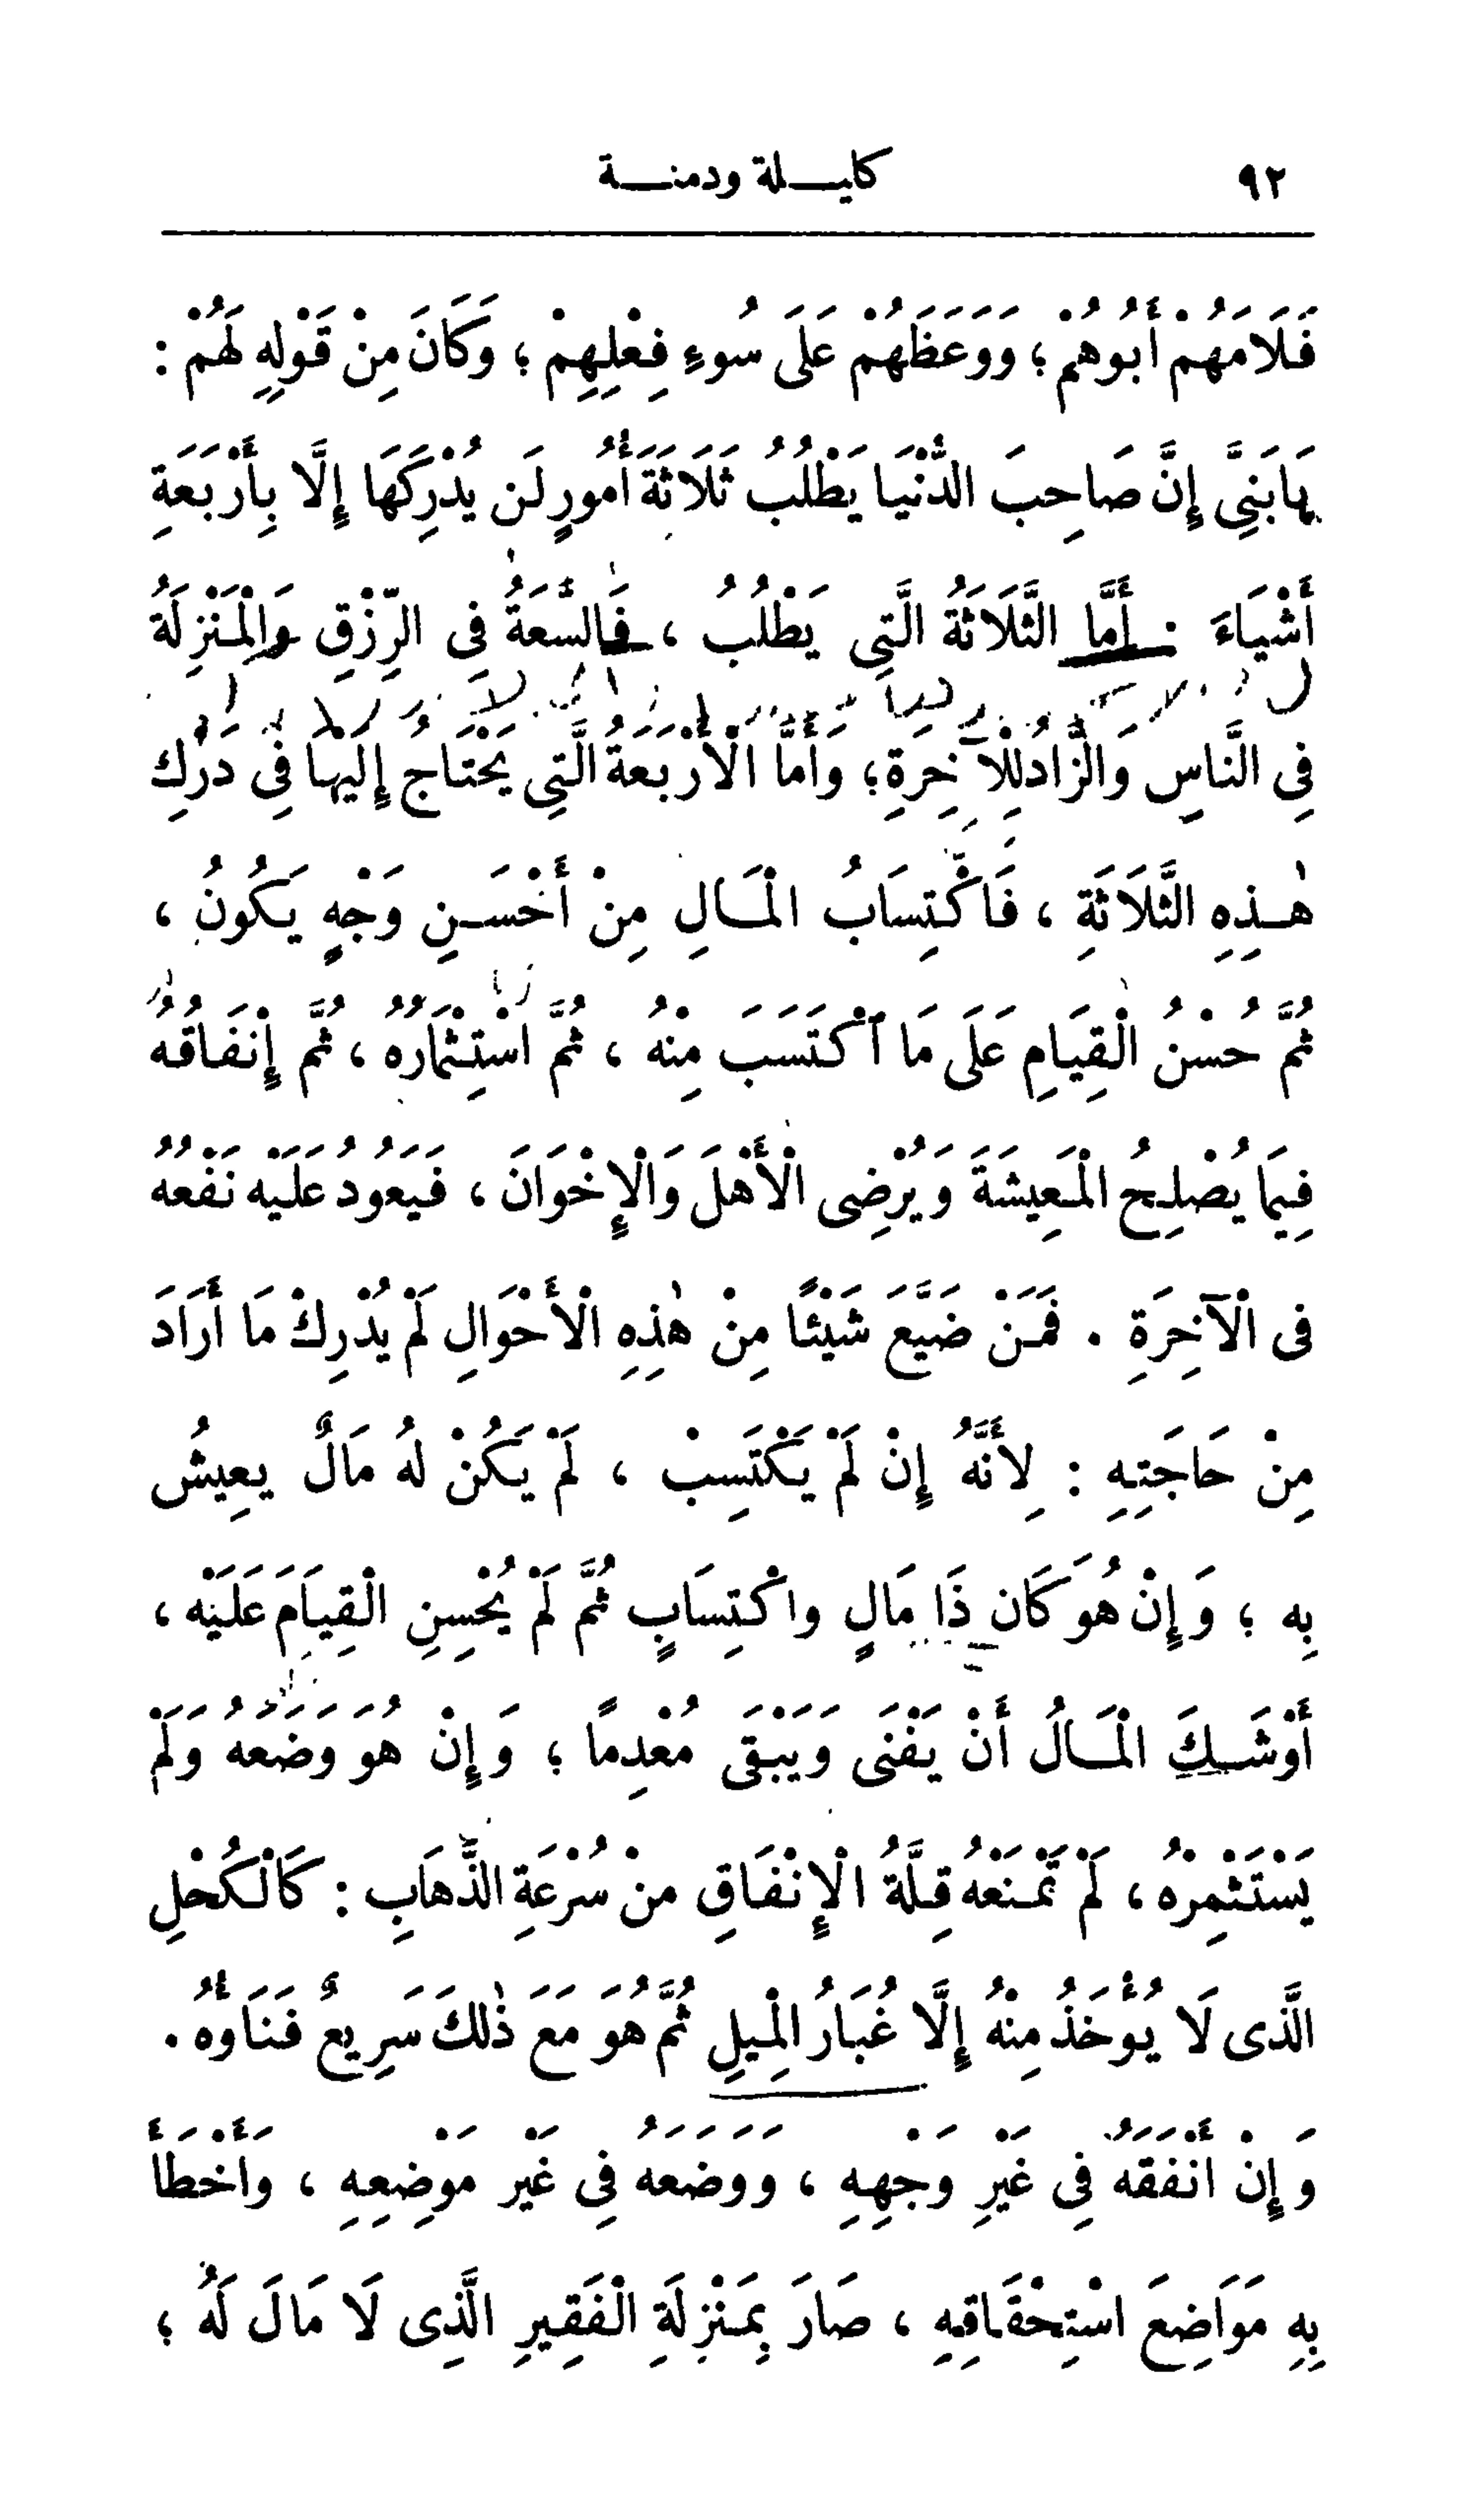 ٩٢ كليلة ودمنة
فَلَامَهُمْ أَبُوهُمْ ؛ وَوَعَظَهُمْ عَلَى سُوءِ فِعْلِهِمْ ؛ وَكَانَ مِنْ قَوْلِهِ لَهُمْ :
يَابَنِيَّ إِنَّ صَاحِبَ الدُّنْيَا يَطْلُبُ ثَلَاثَةَ أُمُورٍ لَن يُدْرِكَهَا إِلَّا بِأَرْبَعَةِ
أَشْيَاءَ : أَمَّا الثَّلَاثَةُ الَّتِي يَطْلُبُ ، فَالسَّعَةُ فِي الرِّزْقِ وَالْمَنْزِلَةُ
فِي النَّاسِ وَالزَّادُ لِلْآخِرَةِ ؛ وَأَمَّا الْأَرْبَعَةُ الَّتِي يَحْتَاجُ إِلَيْهَا فِي دَرَكِ
هٰذِهِ الثَّلَاثَةِ ، فَاكْتِسَابُ الْمَالِ مِنْ أَحْسَنِ وَجْهٍ يَكُونُ ،
ثُمَّ حُسْنُ الْقِيَامِ عَلَى مَا اكْتَسَبَ مِنْهُ ، ثُمَّ اسْتِثْمَارُهُ ، ثُمَّ إِنْفَاقُهُ
فِيمَا يُصْلِحُ الْمَعِيشَةَ وَيُرْضِى الْأَهْلَ وَالْإِخْوَانَ ، فَيَعُودُ عَلَيْه نَفْعُهُ
فى الْآخِرَةِ . فَمَنْ ضَيَّعَ شَيْئًا مِنْ هٰذِهِ الْأَحْوَالِ لَمْ يُدْرِكْ مَا أَرَادَ
مِنْ حَاجَتِهِ : لِأَنَّهُ إِنْ لَمْ يَكْتَسِبْ ، لَمْ يَكُنْ لَهُ مَالٌ يعِيشُ
بِه ؛ وَإِنْ هُوَ كَان ذَا مَالٍ واكْتِسَابٍ ثُمَّ لَمْ يُحْسِنِ الْقِيَامَ عَلَيْه ،
أَوْشَكَ الْمَالُ أَنْ يَفْنَى وَيَبْقَى مُعْدِمًا ؛ وَإِنْ هُوَ وَضَعَهُ وَلَمْ
يَسْتَثْمِرْهُ ، لَمْ تَمْنَعْهُ قِلَّةُ الْإِنْفَاقِ منْ سُرْعَةِ الذَّهَابِ : كَالْكُحْلِ
الَّذى لَا يُؤْخَذُ مِنْهُ إِلَّا غُبَارُ الْمِيلِ ثُمَّ هُوَ مَعَ ذٰلكَ سَرِيعٌ فَنَاؤُهُ .
وَإِنْ أَنْفَقَهُ فِي غَيْرِ وَجْهِهِ ، وَوَضَعَهُ فِي غَيْر مَوْضِعِهِ ، وَأَخْطَأَ
بِهِ مَوَاضِعَ اسْتِحْقَاقِهِ ، صَارَ بِمَنْزِلَةِ الْفَقِيرِ الَّذِى لَا مَالَ لَهُ ؛